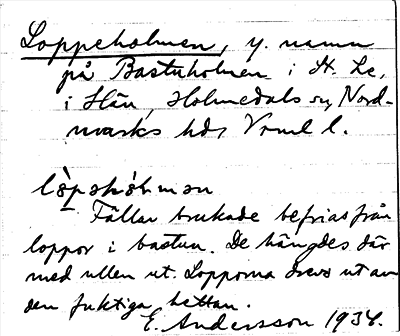 Loppeholmen, y. namn
på Bastuholmen i St. Le,
i Hån, Holmedals sn, Nord-
marks hd, Vrml l.
lò̀pəhòlmən
Fällar brukade befrias från
loppor i bastun. De hängdes där
med ullen ut. Lopporna drevs ut av
den fuktiga hettan.
E. Andersson 1934.